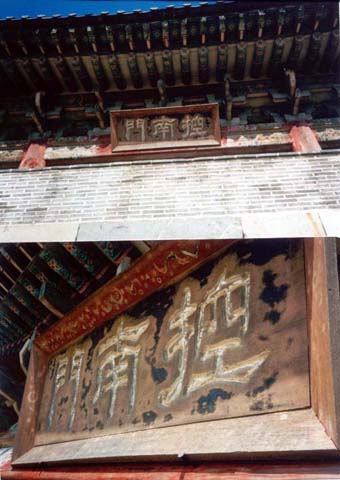 控南門
控南門